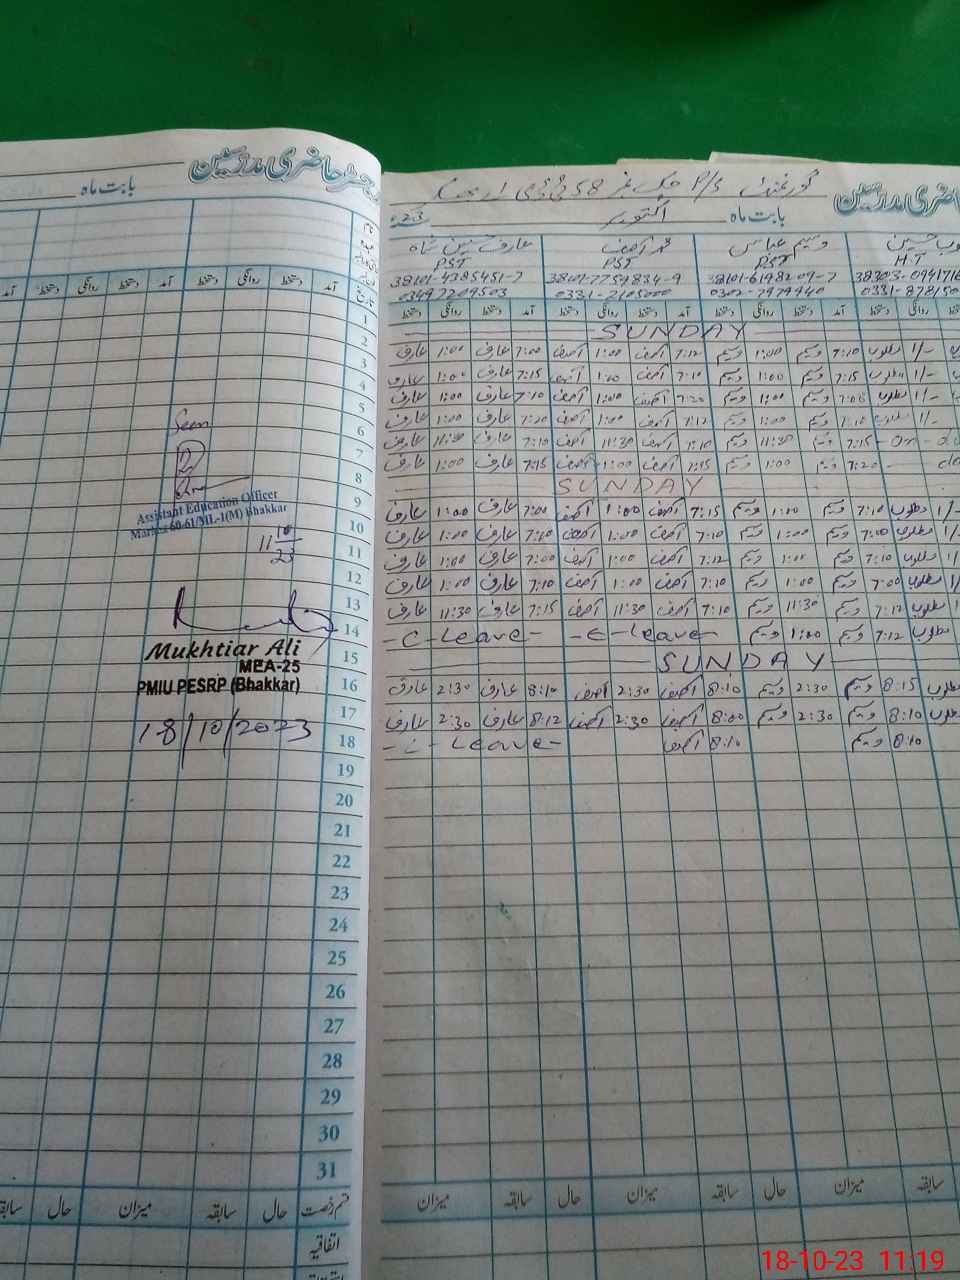 رجسٹر حاضری مدرسین
بابت ماہ
نام
عہدہ
تاریخ
آمد دستخط روانگی دستخط آمد دستخط روانگی دستخط آمد
1
2
3
4
5
6
7
8
9
10
11
12
13
14
15
16
17
18
19
20
21
22
23
24
25
26
27
28
29
30
31
قسم رخصت حال سابقہ میزان حال سابقہ
اتفاقیہ
Seen
Assistant Education Officer
Markaz 60-61/ML-1(M) Bhakkar
11 10 23
Mukhtiar Ali
MEA-25
PMIU PESRP (Bhakkar)
18/10/2023
گورنمنٹ P/S چک نمبر 58
حاضری مدرسین
بابت ماہ اکتوبر 2023
H.T وسیم عباس PST محمد آصف PST عارف حسین شاہ PST
38101-6198209-7 38101-7759834-9 38101-4385451-7
0302-7979440 0331-2105000 03497209503
دستخط روانگی دستخط آمد دستخط روانگی دستخط آمد دستخط روانگی دستخط آمد دستخط روانگی دستخط
SUNDAY
مطلوب 7:10 وسیم 1:00 وسیم 7:12 آصف 1:00 آصف 7:00 عارف 1:00 عارف
مطلوب 7:15 وسیم 1:00 وسیم 7:10 آصف 1:00 آصف 7:15 عارف 1:00 عارف
مطلوب وسیم 1:00 وسیم 7:20 آصف 1:00 آصف 7:10 عارف 1:00 عارف
مطلوب 7:10 وسیم 1:00 وسیم 7:12 آصف 1:00 آصف عارف 1:00 عارف
- On - 7:15 وسیم 11:30 وسیم 7:10 آصف 11:30 آصف 7:10 عارف 11:30 عارف
7:20 وسیم 1:00 وسیم 7:15 آصف 1:00 آصف 7:15 عارف 1:00 عارف
SUNDAY
مطلوب 7:10 وسیم 1:00 وسیم 7:15 آصف 1:00 آصف 7:00 عارف 1:00 عارف
مطلوب 7:00 وسیم 1:00 وسیم 7:10 آصف 1:00 آصف 7:10 عارف 1:00 عارف
مطلوب 7:10 وسیم 1:00 وسیم 7:12 آصف 1:00 آصف 7:00 عارف 1:00 عارف
مطلوب 7:00 وسیم 1:00 وسیم 7:10 آصف 1:00 آصف 7:10 عارف 1:00 عارف
مطلوب 7:12 وسیم 11:30 وسیم 7:10 آصف 11:30 آصف 7:15 عارف 11:30 عارف
مطلوب 7:12 وسیم 1:00 وسیم - C - Leave - - C - Leave -
SUNDAY
مطلوب 8:15 وسیم 2:30 وسیم 8:10 آصف 2:30 آصف 8:10 عارف 2:30 عارف
مطلوب 8:10 وسیم 2:30 وسیم 8:00 آصف 2:30 آصف 8:12 عارف 2:30 عارف
8:10 وسیم 8:10 آصف - C - Leave -
سابقہ میزان حال سابقہ میزان حال سابقہ میزان
18-10-23 11:19